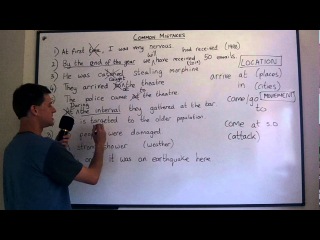 COMMON MISTAKES
1) At first time, I was very nervous
will had received (1988)
2) By the end of year we have received 50 emails. (join)
LOCATION
caught
3) He was catched stealing morphine arrive at (places)
4) They arrived to the theatre in (cities)
to
The police came at the theatre come/go MOVEMENT
During
At the interval they gathered at the bar to
is targeted to the older population. come at s.o
people were damaged (attack)
shower (weather)
it was an earthquake here